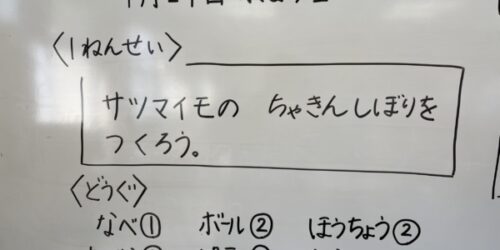 〈1ねんせい〉
サツマイモの ちゃきんしぼりを
つくろう。
〈どうぐ〉
なべ① ボール② ほうちょう②